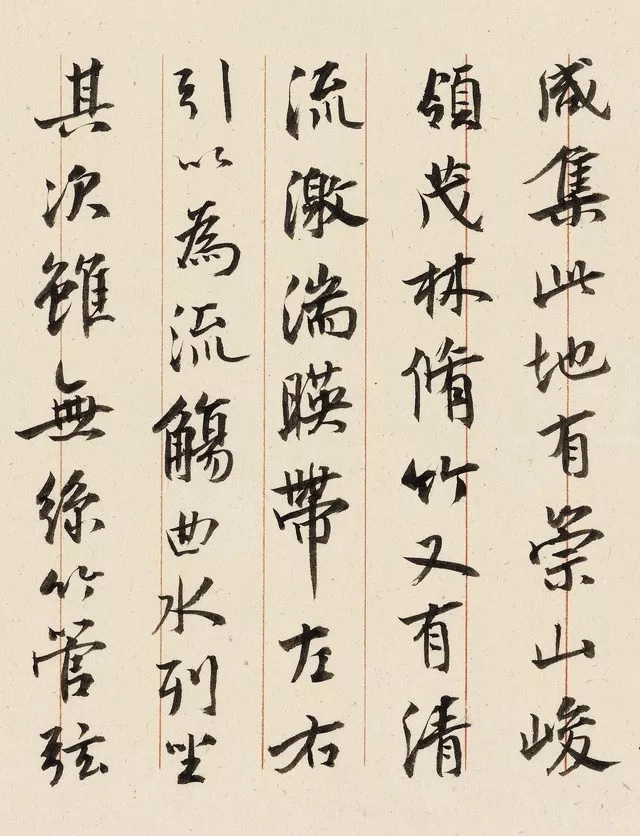 咸集此地有崇山峻
領茂林脩竹又有清
流激湍暎帶左右
引以為流觴曲水列坐
其次雖無絲竹管弦